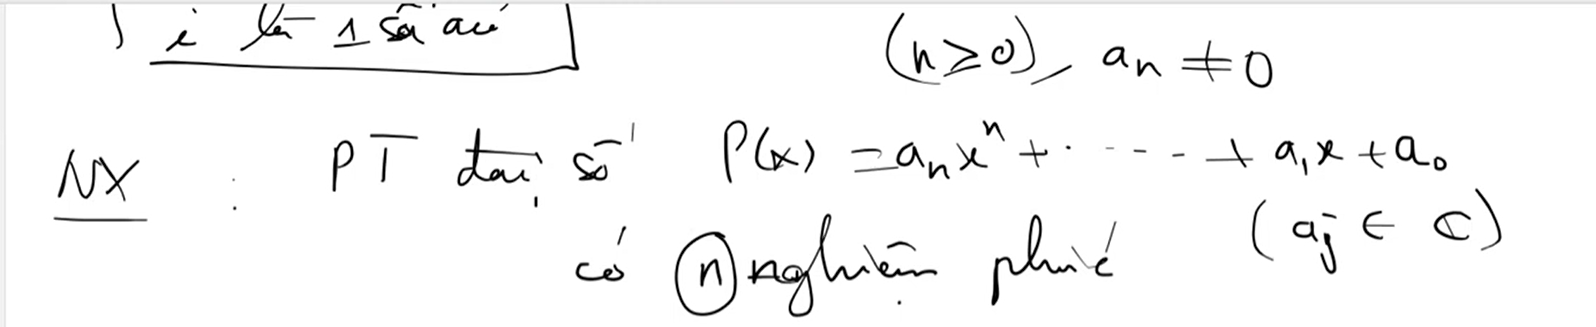 i là 1 số ảo
(n ≥ 0), aₙ ≠ 0
NX : PT đại số P(x) = aₙxⁿ + ..... + a₁x + a₀
có n nghiệm phức (aⱼ ∈ ℂ)